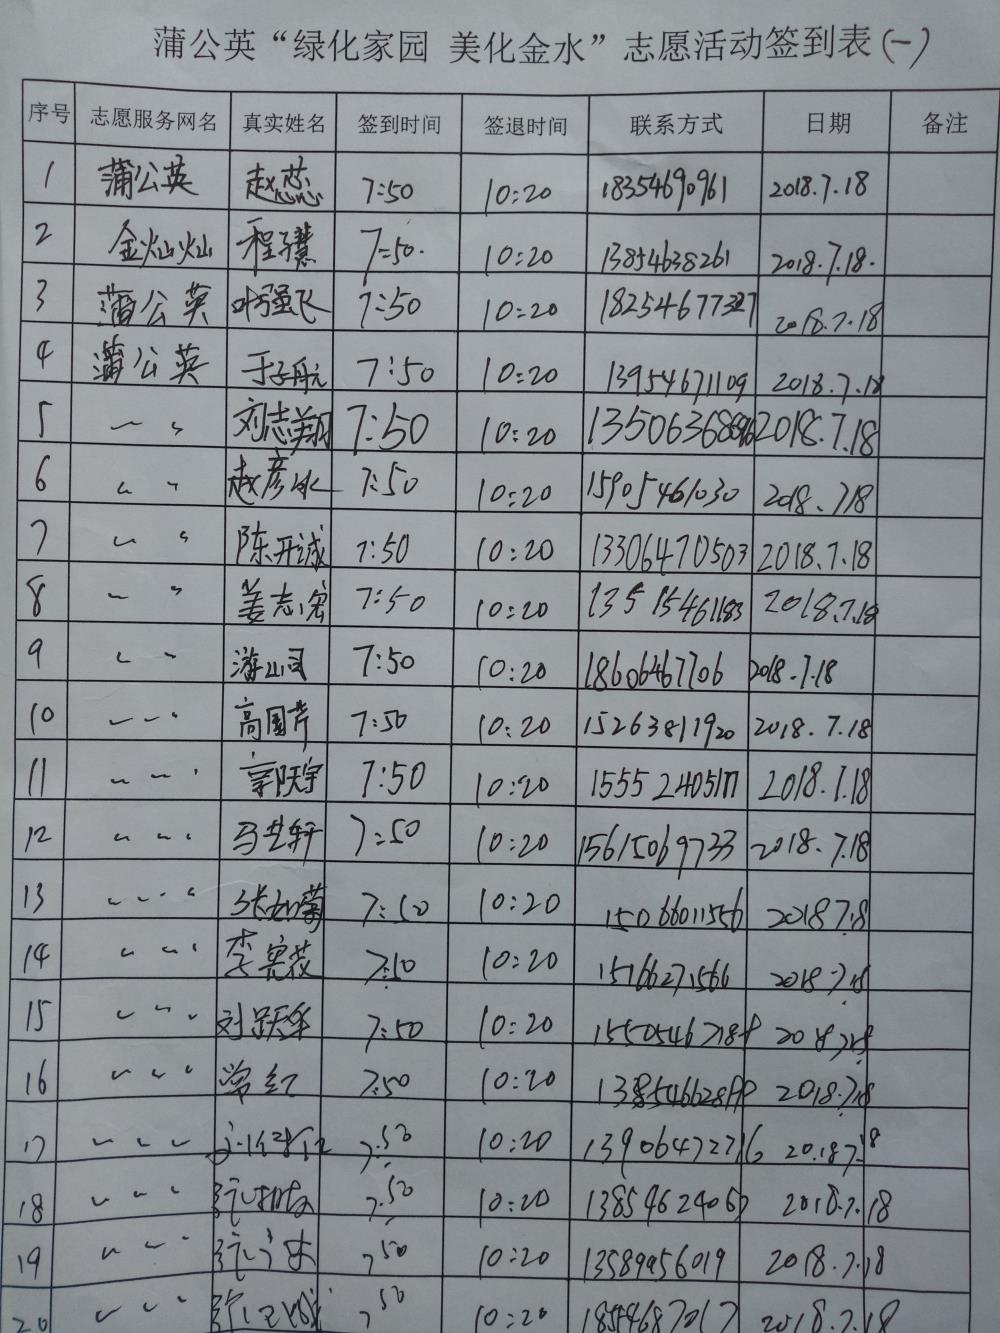 蒲公英“绿化家园 美化金水”志愿活动签到表(一)
序号 志愿服务网名 真实姓名 签到时间 签退时间 联系方式 日期 备注
1 蒲公英 赵蕊 7:50 10:20 18354690961 2018.7.18
2 金灿灿 程子慧 7:50 10:20 13854638261 2018.7.18.
3 蒲公英 叶强飞 7:50 10:20 18254677327 2018.7.18
4 蒲公英 于子航 7:50 10:20 13954671109 2018.7.18
5 〃 刘志翔 7:50 10:20 2018.7.18
6 〃 赵彦冰 7:50 10:20 15905461030 2018.7.18
7 〃 陈开诚 7:50 10:20 13306470503 2018.7.18
8 〃 姜志宏 7:50 10:20 13515461183 2018.7.18
9 〃 7:50 10:20 18606467706 2018.7.18
10 〃 高国芹 7:50 10:20 15263811920 2018.7.18
11 〃 7:50 10:20 2018.7.18
12 〃 马艺轩 7:50 10:20 15615069733 2018.7.18
13 〃 张如菊 7:50 10:20 15066011556 2018.7.18
14 〃 李宪荣 7:50 10:20 15166271566 2018.7.18
15 〃 刘跃华 7:50 10:20 2018.7.18
16 〃 常红 7:50 10:20 2018.7.18
17 〃 7:50 10:20 13906472716 2018.7.18
18 〃 7:50 10:20 2018.7.18
19 〃 7:50 10:20 13589956019 2018.7.18
20 〃 7:50 10:20 2018.7.18